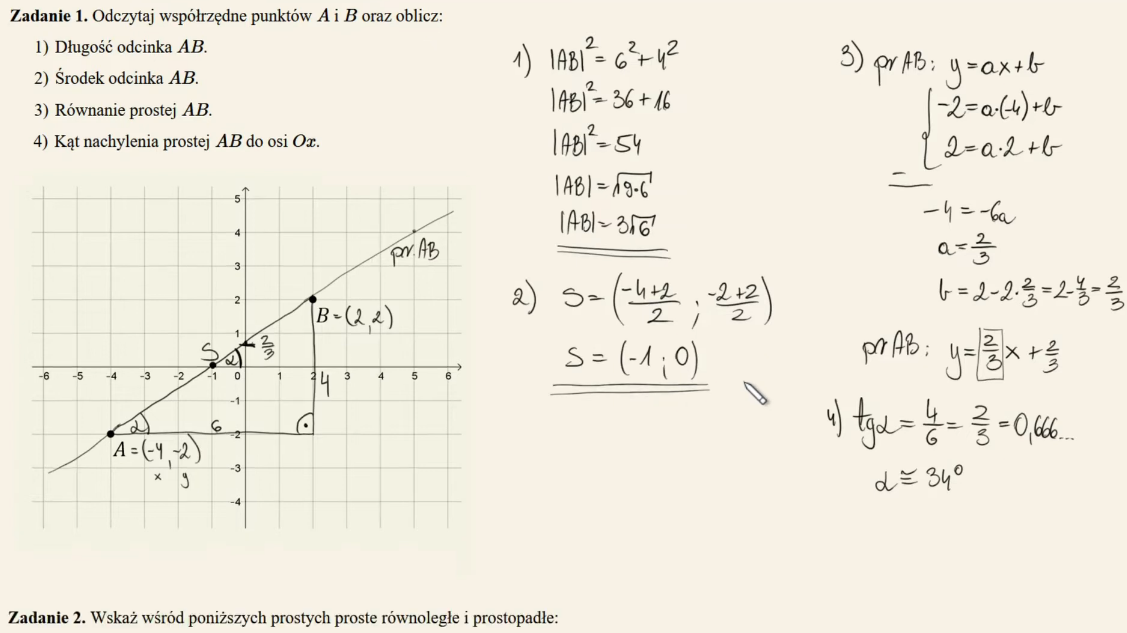 Zadanie 1. Odczytaj współrzędne punktów A i B oraz oblicz:
1) Długość odcinka AB.
2) Środek odcinka AB.
3) Równanie prostej AB.
4) Kąt nachylenia prostej AB do osi Ox.
5
4
pr. AB
3
2
B = (2, 2)
1
S
α
2/3
-6 -5 -4 -3 -2 -1 0 1 2 3 4 5 6
4
-1
α
6
-2
A = (-4, -2)
x y
-3
-4
1) |AB|² = 6² + 4²
|AB|² = 36 + 16
|AB|² = 54
|AB| = √9·6
|AB| = 3√6
2) S = (-4+2/2 ; -2+2/2)
S = (-1 ; 0)
3) pr AB: y = ax + b
{ -2 = a·(-4) + b
2 = a·2 + b
-
-4 = -6a
a = 2/3
b = 2 - 2·2/3 = 2 - 4/3 = 2/3
pr AB: y = 2/3 x + 2/3
4) tg α = 4/6 = 2/3 = 0,666...
α ≅ 34°
Zadanie 2. Wskaż wśród poniższych prostych proste równoległe i prostopadłe: